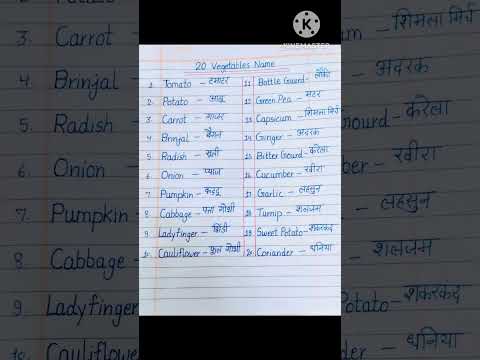 KINEMASTER
20 Vegetables Name
1. Tomato – टमाटर
2. Potato – आलू
3. Carrot – गाजर
4. Brinjal – बैंगन
5. Radish – मूली
6. Onion – प्याज
7. Pumpkin – कद्दू
8. Cabbage – पत्ता गोभी
9. Ladyfinger – भिंडी
10. Cauliflower – फूल गोभी
11. Bottle Gourd – लौकी
12. Green Pea – मटर
13. Capsicum – शिमला मिर्च
14. Ginger – अदरक
15. Bitter Gourd – करेला
16. Cucumber – खीरा
17. Garlic – लहसुन
18. Turnip – शलजम
19. Sweet Potato – शकरकंद
20. Coriander – धनिया
3. Carrot
4. Brinjal
5. Radish
6. Onion
7. Pumpkin
8. Cabbage
9. Ladyfinger
10. Cauliflower
um – शिमला मिर्च
– अदरक
Gourd – करेला
ber – खीरा
– लहसुन
– शलजम
Potato – शकरकंद
– धनिया